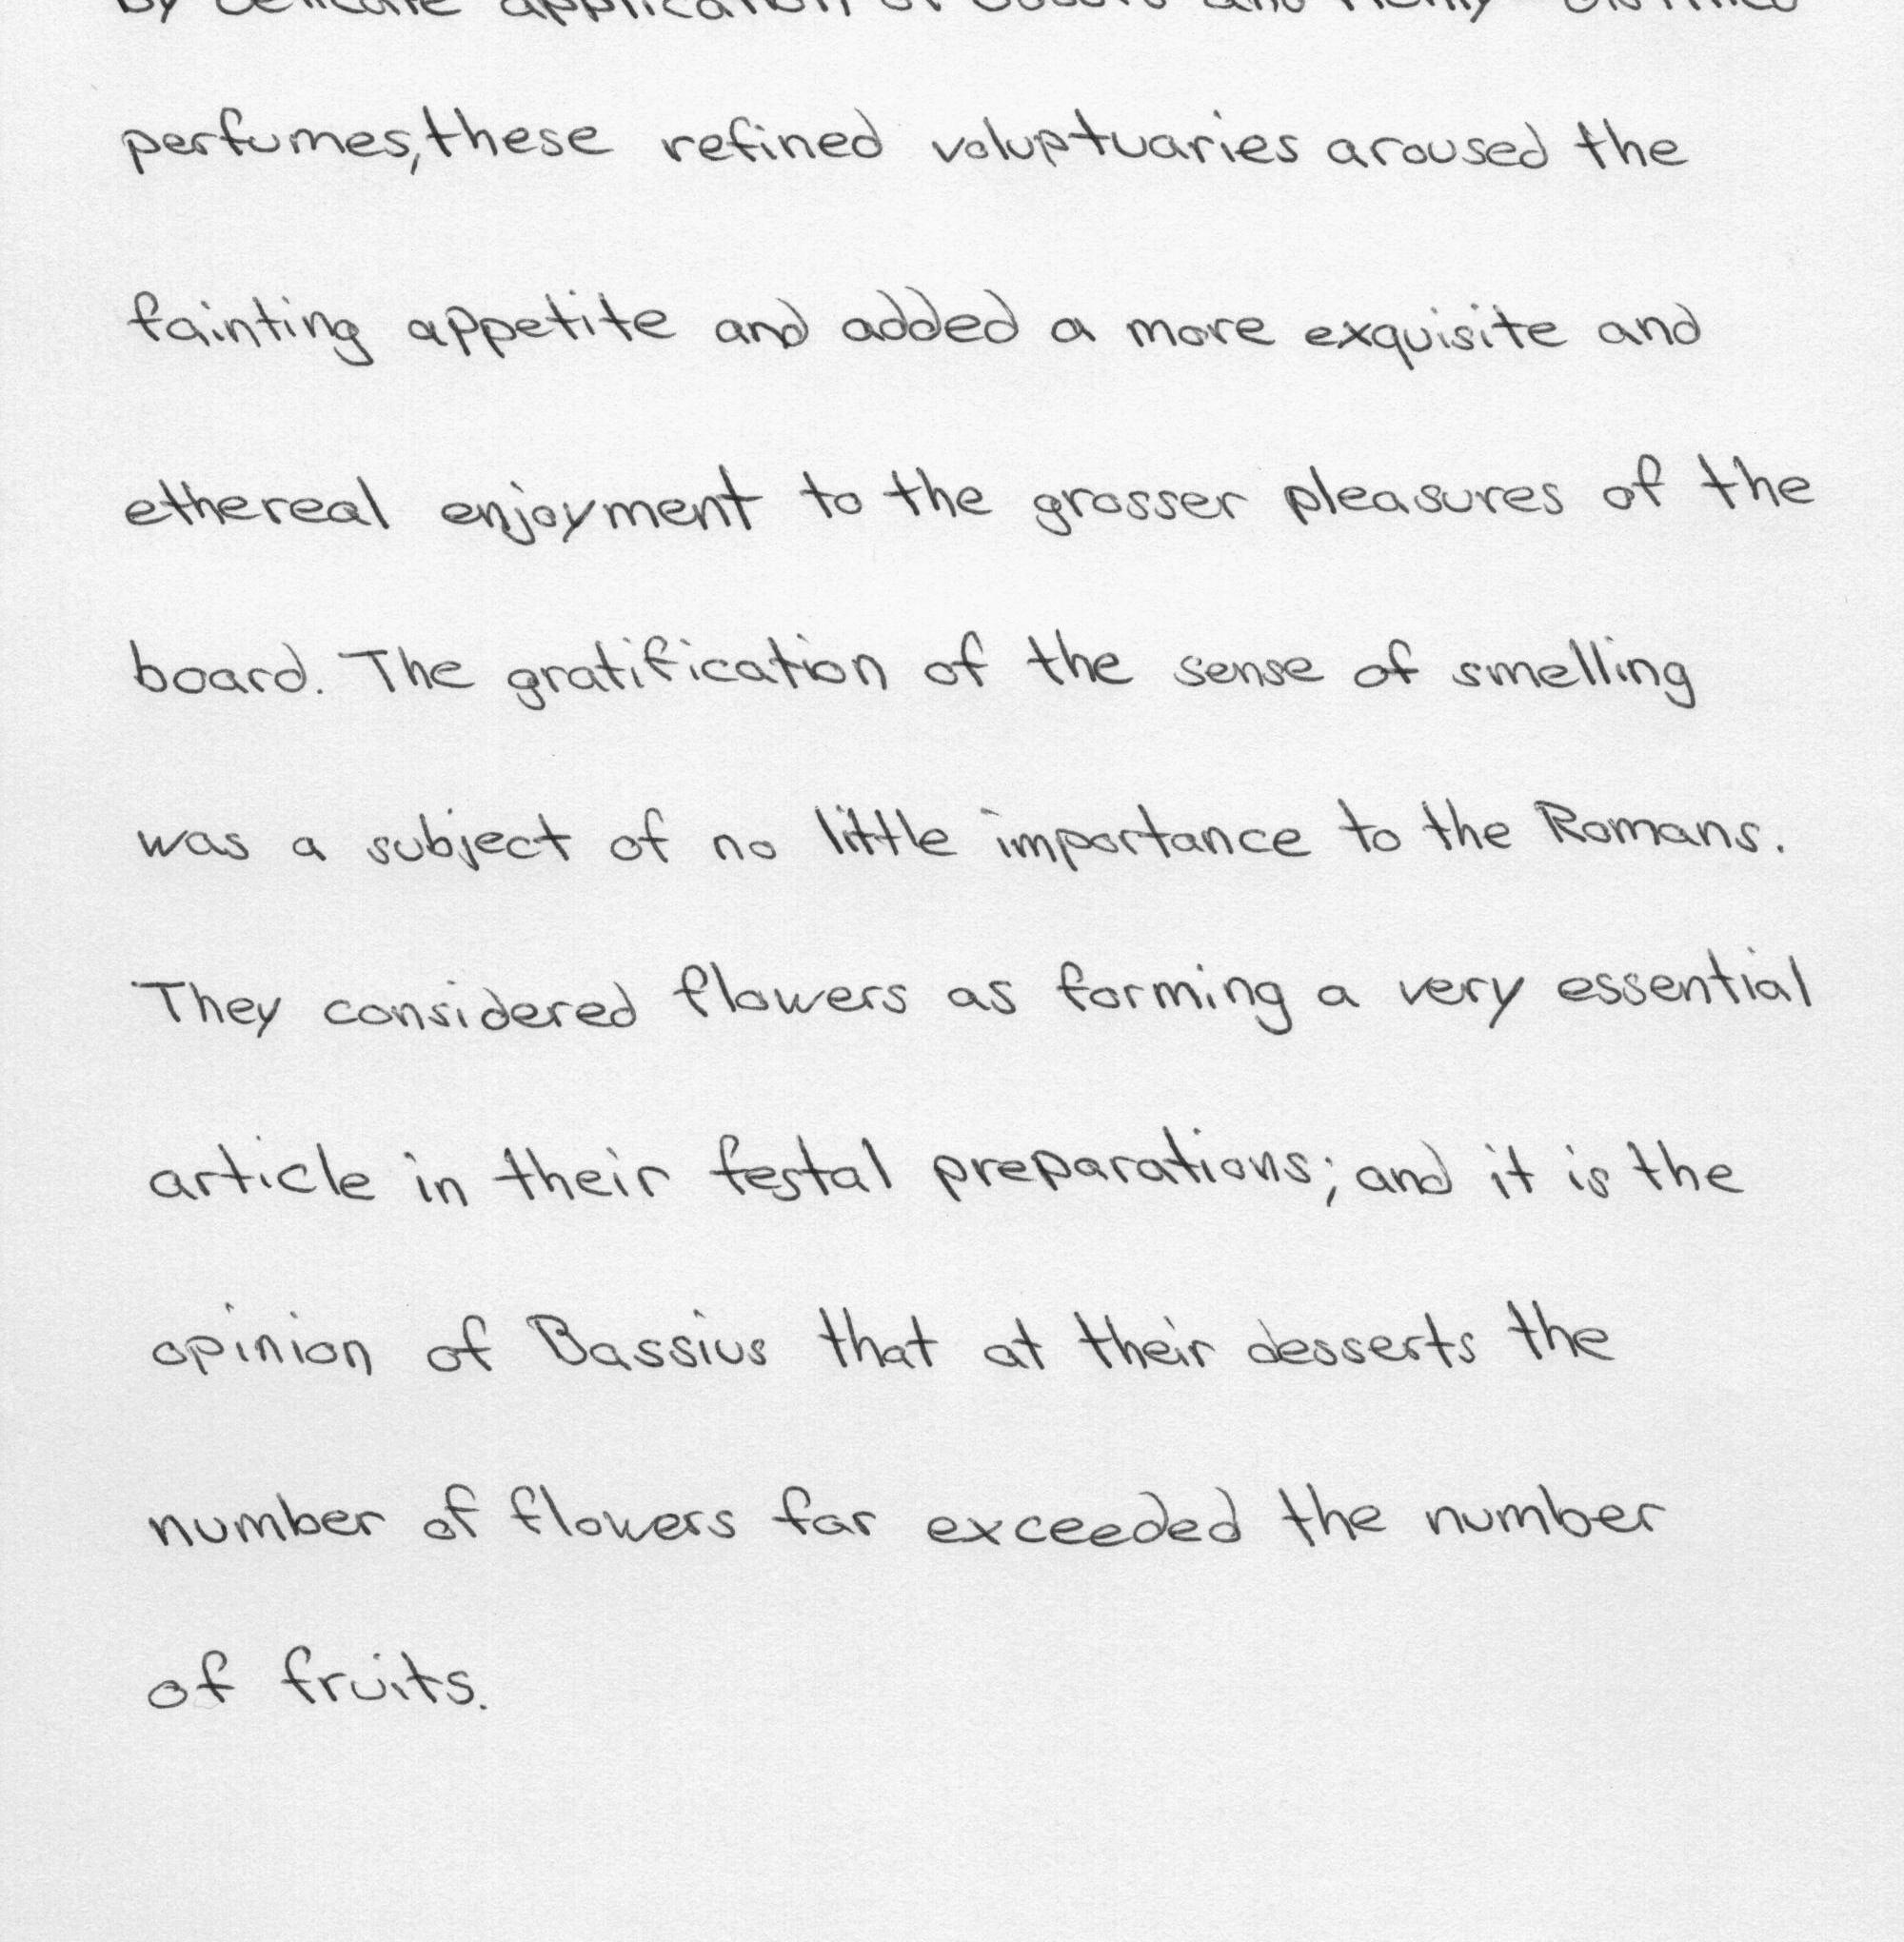 by delicate application of odours and richly distilled
perfumes, these refined voluptuaries aroused the
fainting appetite and added a more exquisite and
ethereal enjoyment to the grosser pleasures of the
board. The gratification of the sense of smelling
was a subject of no little importance to the Romans.
They considered flowers as forming a very essential
article in their festal preparations; and it is the
opinion of Bassius that at their desserts the
number of flowers far exceeded the number
of fruits.